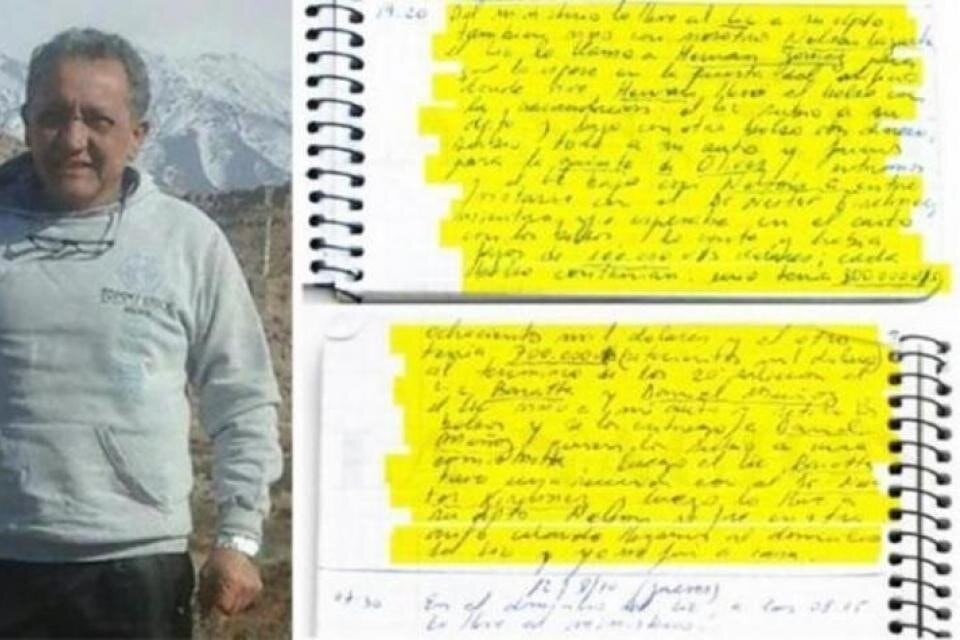 19:20 Del ministerio lo lleve al Lic a su dpto.
tambien vino con nosotros Nelson
el Lic lo llama a Hernan Gomez para
que lo espere en la puerta del edificio
donde vive Hernan llevo el bolso con
la recaudación el Lic subio a su
dpto y bajo con otro bolso con dinero,
todo a mi auto y fuimos
para la quinta de Olivos, entramos
y el Lic bajo con Nelson a entre
vistarse con el Dr Nestor Kirchner
mientras yo esperaba en el auto
con los bolsos. Lo conte y habia
fajos de 100.000 u/s dolares, cada
bolso contenian. uno tenia 800.000 u/s
ochocientos mil dolares y el otro
tenia 700.000 (setecientos mil dolares)
al termino de los 20 minutos el
Lic Baratta y Daniel Muñoz
el Lic vino a mi auto y retiro los
bolsos y se los entrego a Daniel
Muñoz y
Luego el Lic Baratta
tuvo una reunion con el Dr Nes
tor Kirchner, luego lo lleve a
su dpto. Nelson se fue en otro
auto cuando llegamos al domicilio
del Lic y yo me fui a casa.
12/8/10 (jueves)
07:30 En el domicilio del Lic, a las 08:15
lo lleve al ministerio.